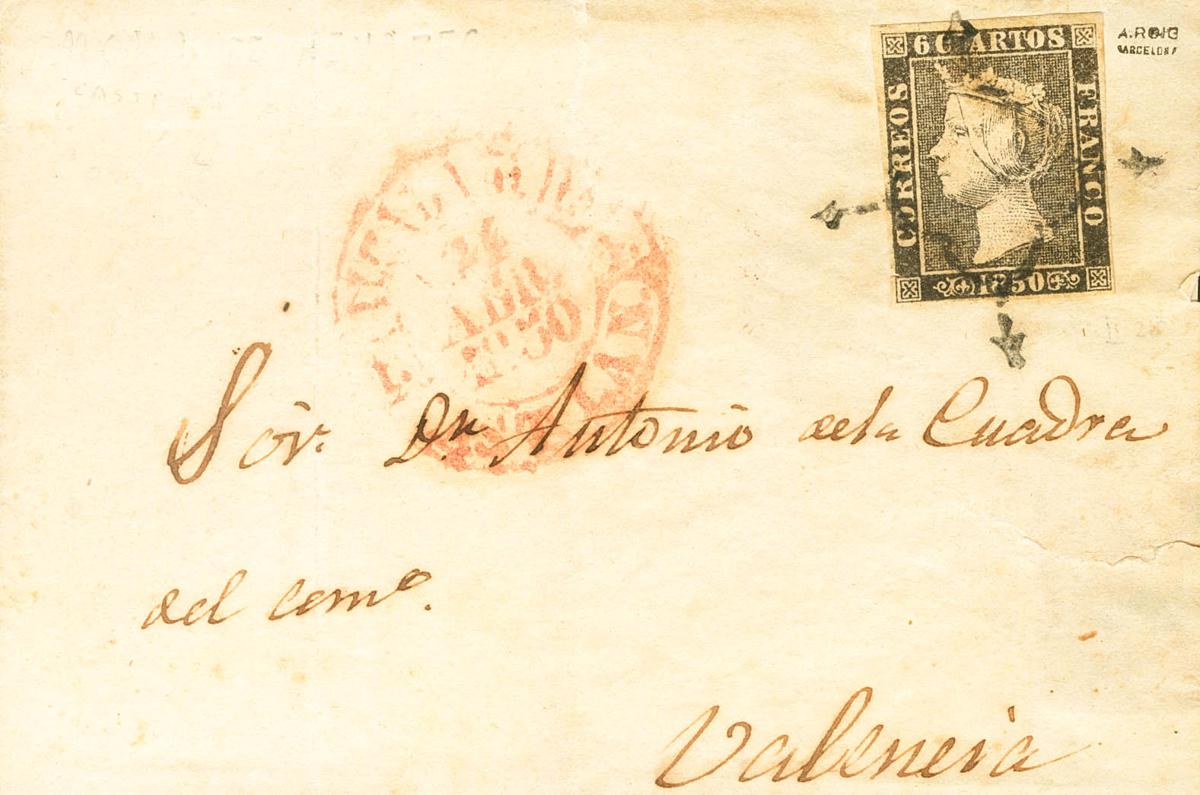 6 CUARTOS
CORREOS
FRANCO
1850
A. ROIG
BARCELONA
24
ABR.
1850
Sör. Dn Antonio de la Cuadra
del comº.
Valencia